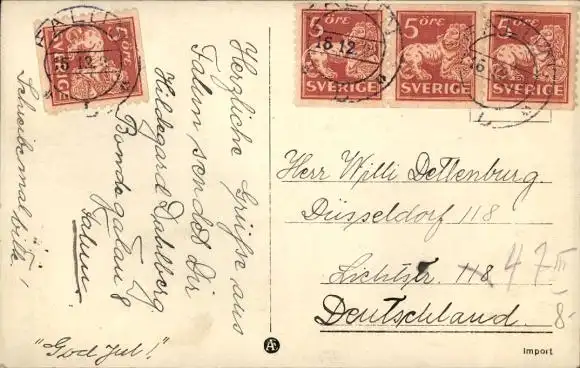 FALUN
16 12
5 ÖRE
SVERIGE
5 ÖRE
SVERIGE
5 ÖRE
SVERIGE
5 ÖRE
SVERIGE
Herzliche Grüße aus
Falun sendet Dir
Hildegard Dahlberg
Bondegatan 8
Falun
Schreibe mal bitte!
"God Jul!"
Herr Willi Dettenburg
Düsseldorf 118
Lichtstr. 118
47 III
8
Deutschland.
Æ
Import